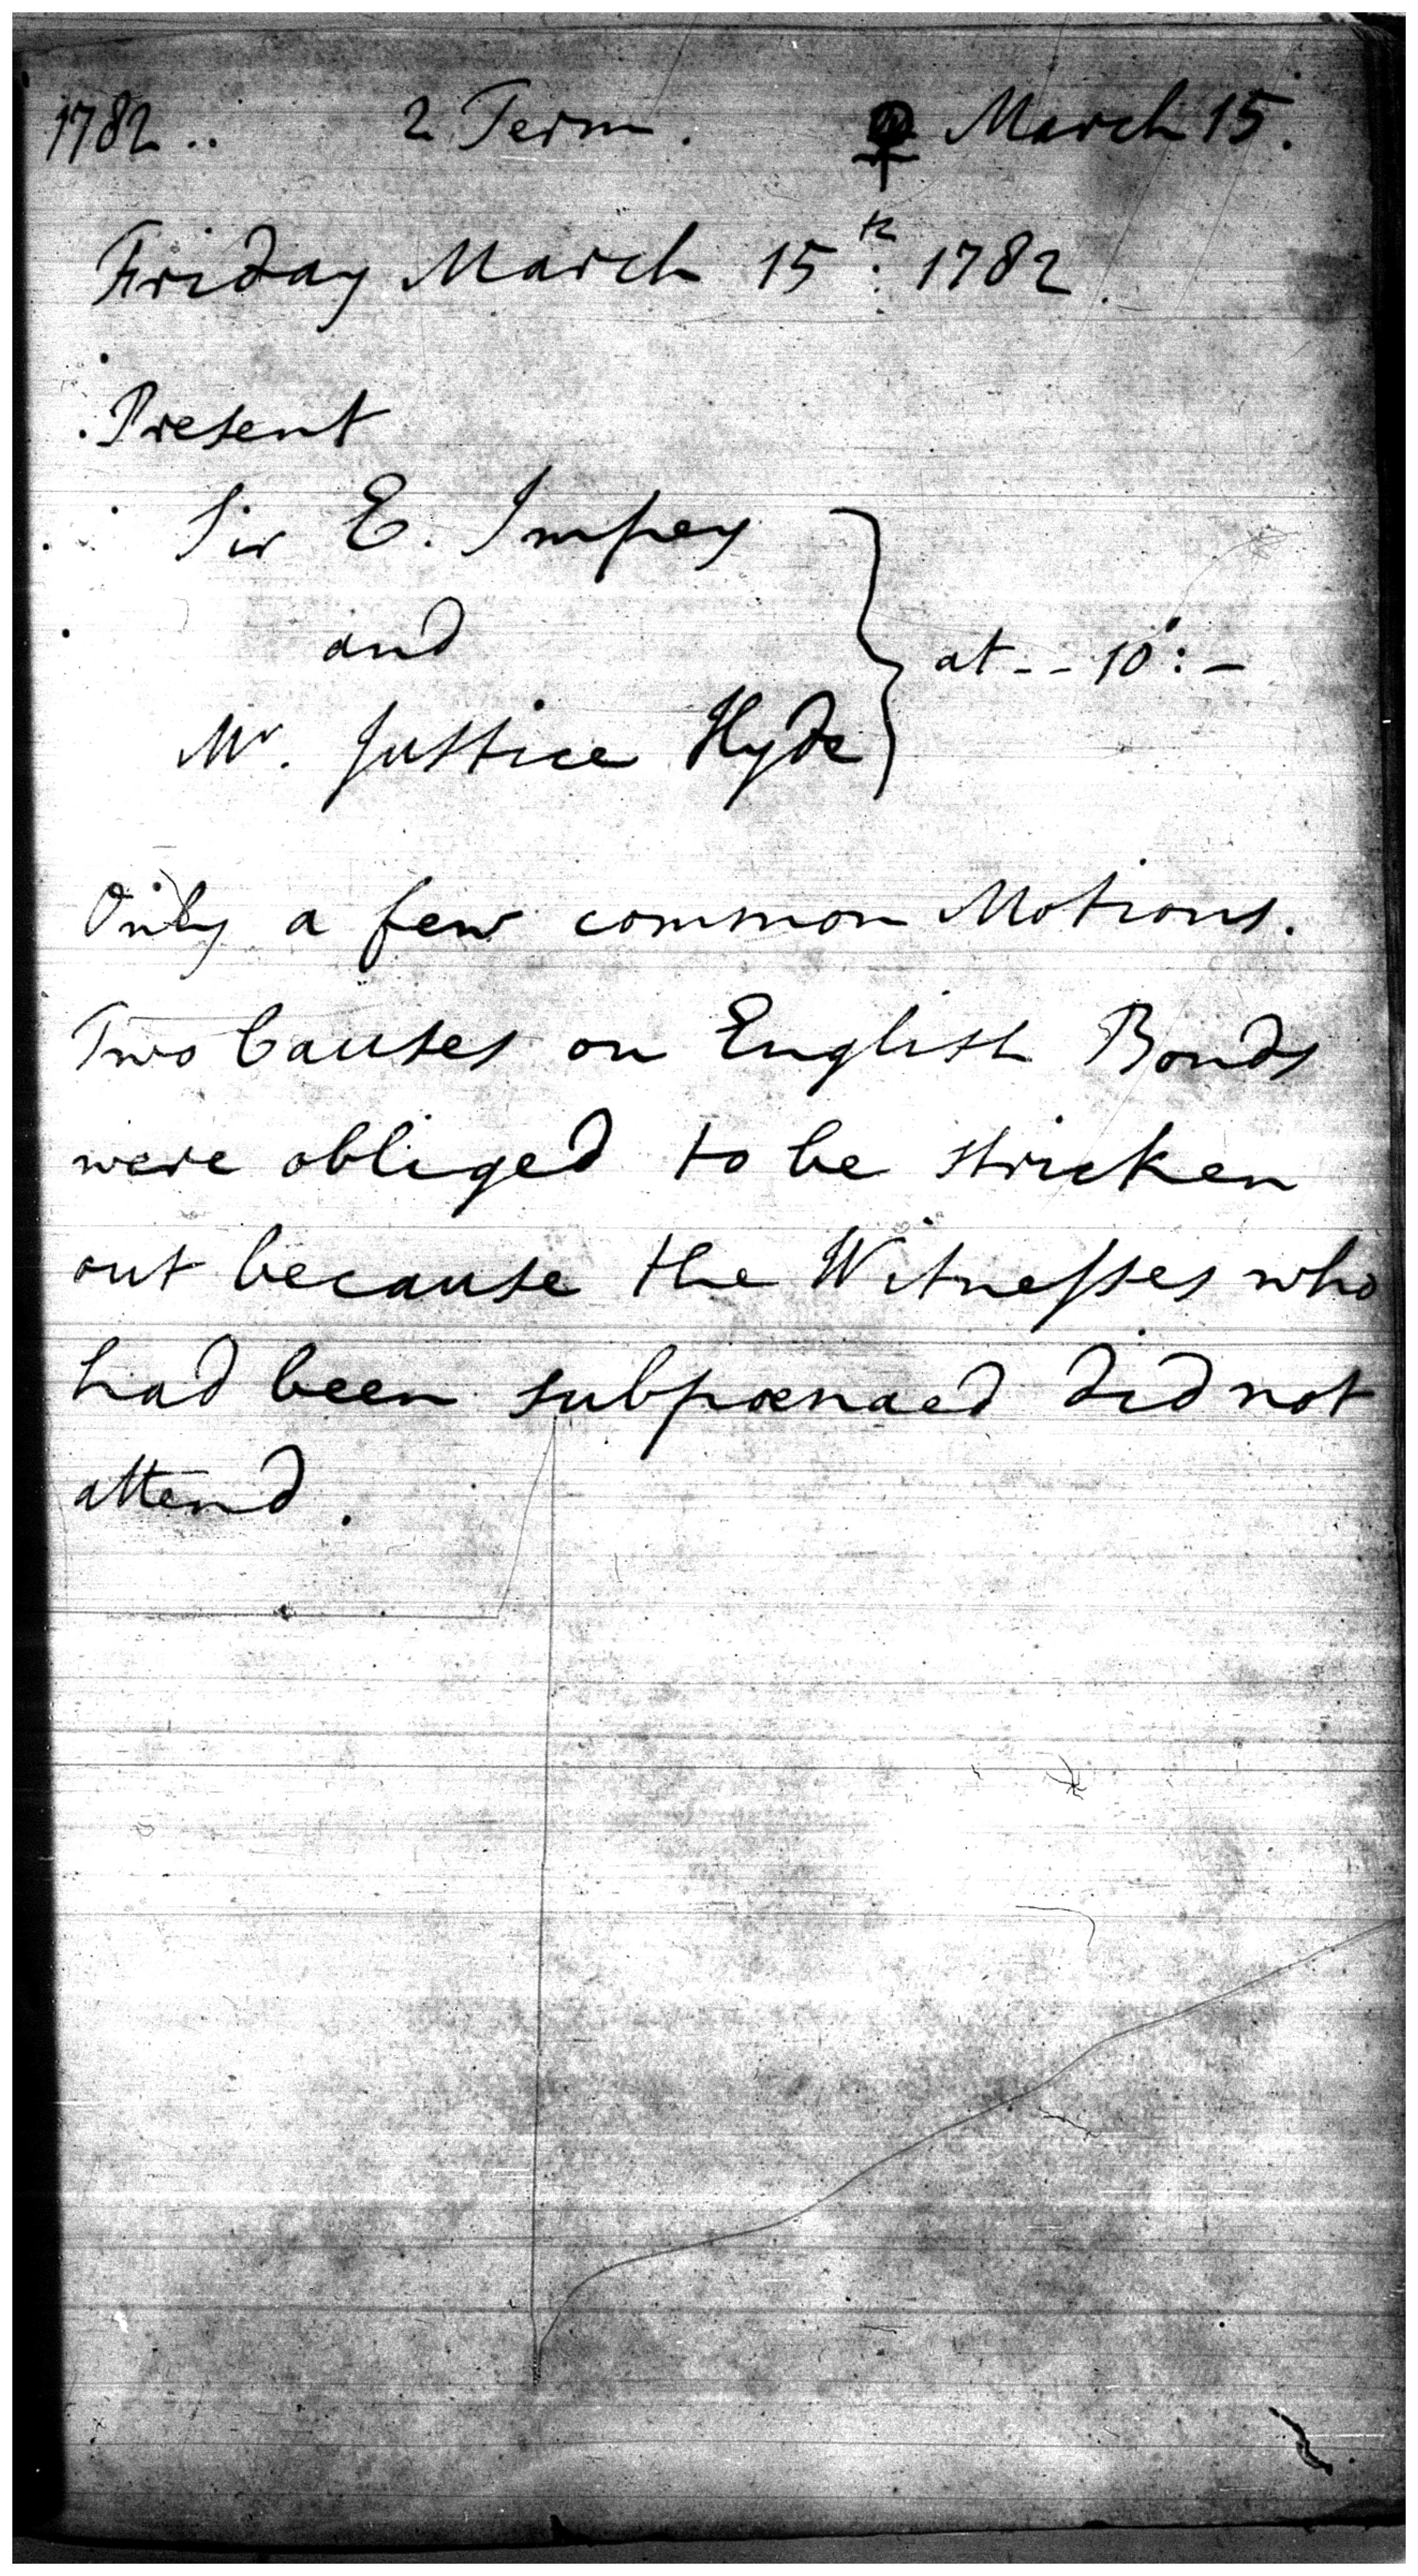 1782.. 2 Term. ♀ March 15.
Friday March 15th. 1782.
Present
Sir E. Impey
and
at -- 10: –
Mr. Justice Hyde
Only a few common Motions.
Two Causes on English Bonds
were obliged to be stricken
out because the Witnesses who
had been subpœnaed did not
attend.